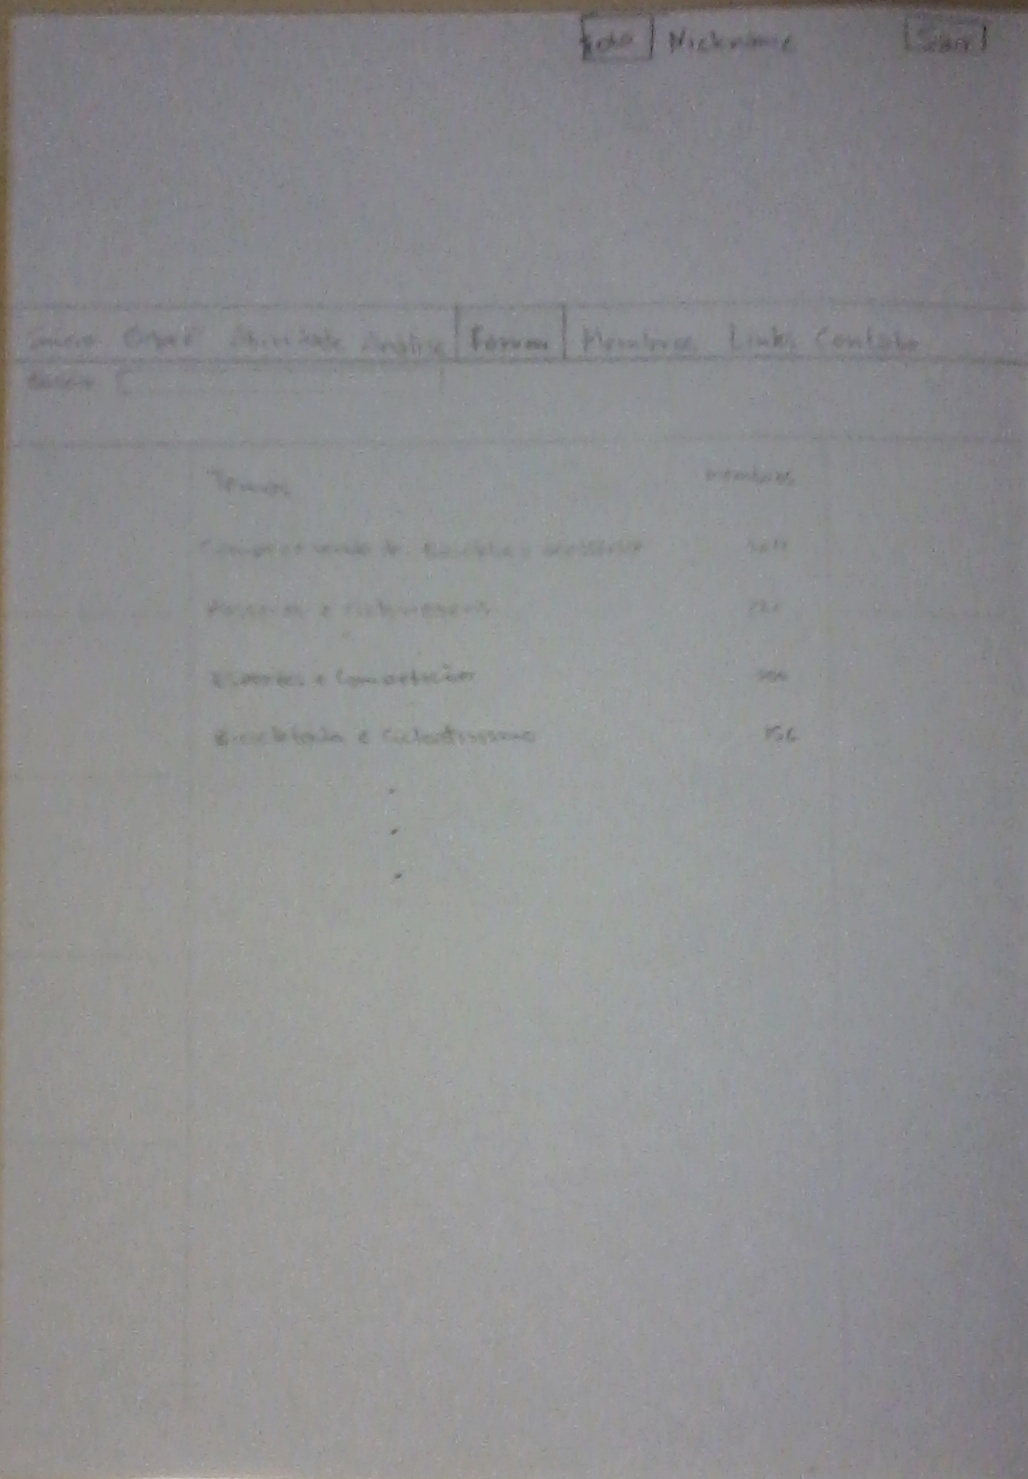 Foto Nickname Sair
Início O que é Atividade Análise Forum Membros Links Contato
Busca
Temas membros
Compra e venda de Bicicletas e acessórios
Passeios e
Esportes e Competição
Bicicletada e Cicloativismo 156